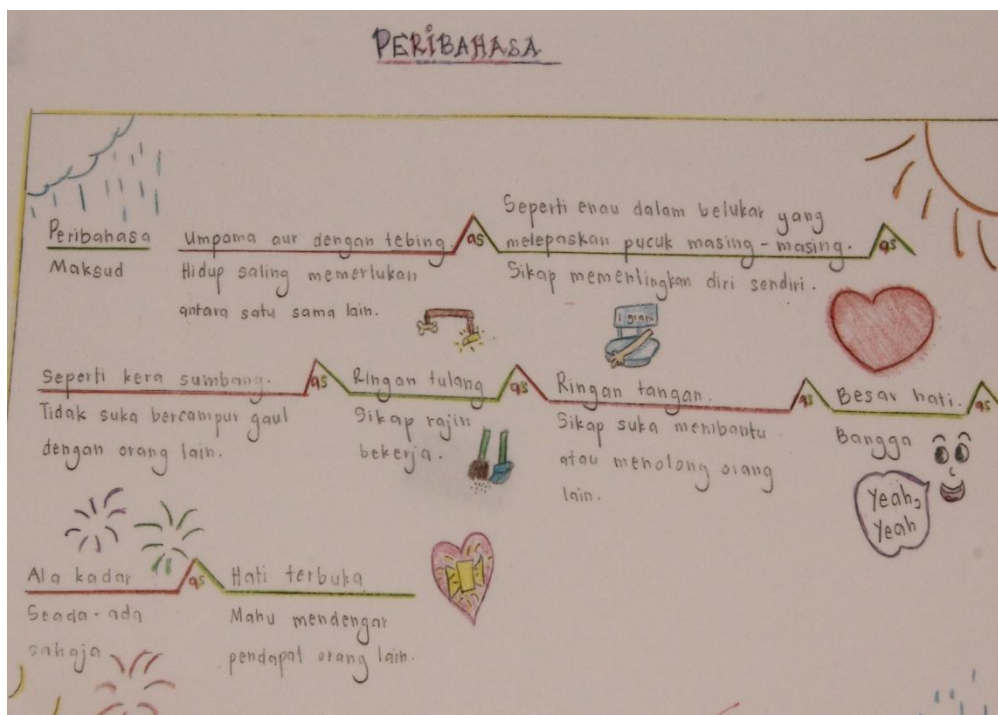 PERIBAHASA
Peribahasa
Maksud
Umpama aur dengan tebing.
as
Hidup saling memerlukan
antara satu sama lain.
Seperti enau dalam belukar yang
melepaskan pucuk masing-masing.
as
Sikap mementingkan diri sendiri.
1 gram
Seperti kera sumbang.
as
Tidak suka bercampur gaul
dengan orang lain.
Ringan tulang
as
Sikap rajin
bekerja.
Ringan tangan.
as
Sikap suka membantu
atau menolong orang
lain.
Besar hati.
as
Bangga
Yeah,
Yeah
Ala kadar
as
Seada-ada
sahaja
Hati terbuka
Mahu mendengar
pendapat orang lain.